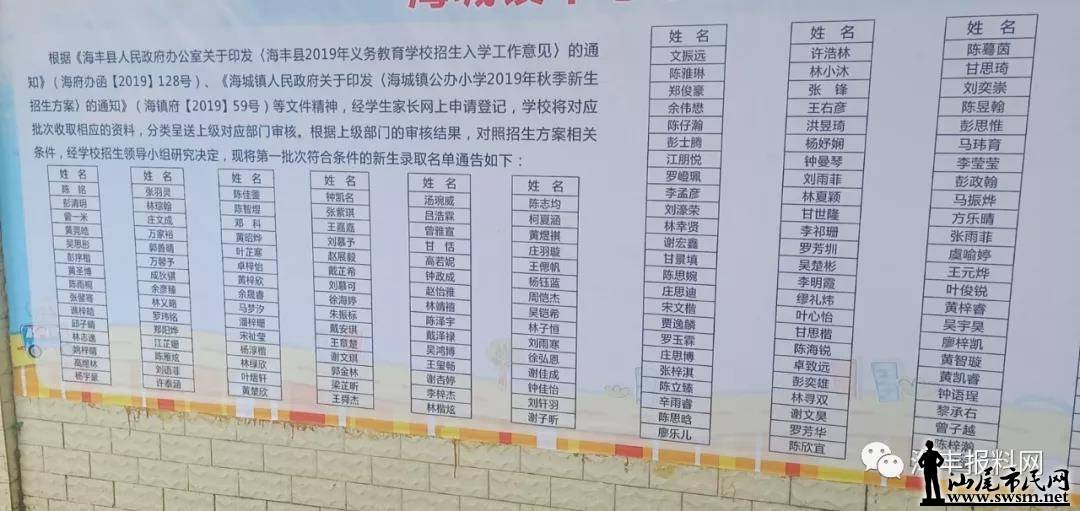 根据《海丰县人民政府办公室关于印发〈海丰县2019年义务教育学校招生入学工作意见〉的通
知》（海府办函【2019】128号）、《海城镇人民政府关于印发〈海城镇公办小学2019年秋季新生
招生方案〉的通知》（海镇府【2019】59号）等文件精神，经学生家长网上申请登记，学校将对应
批次收取相应的资料，分类呈送上级对应部门审核。根据上级部门的审核结果，对照招生方案相关
条件，经学校招生领导小组研究决定，现将第一批次符合条件的新生录取名单通告如下：
姓 名
陈 铭
彭清玥
曾一米
黄莞皓
吴思彤
彭序楷
黄圣博
陈雨桐
张馨骞
龚梓皓
邱子晴
林志逸
姚梓晴
高煜林
杨宇豪
姓 名
张羽灵
林琮翰
庄文成
万家裕
郭善晴
万馨予
成狄骐
余彦臻
林义皓
罗玮铭
郑阳烨
江芷姗
陈雅炫
刘语菲
许泰涵
姓 名
陈佳萱
陈智煜
邓 科
黄昭烨
叶芷寒
卓梓怡
黄梓欣
余晟睿
马梦汐
潘梓珊
宋祉莹
杨淳楷
林绿欣
叶熠轩
黄楚欣
姓 名
钟凯名
张紫琪
王嘉嘉
刘慕予
赵展毅
戴芷希
刘慕可
徐海婷
朱振标
戴安琪
王章楚
谢文琪
郭金林
梁芷昕
王舜杰
姓 名
汤琬威
吕浩霖
曾雅宣
甘 恬
高若妮
钟政成
赵怡雅
林靖禧
陈泽宇
戴泽禄
吴鸿博
王玺畅
谢杏婷
李梓杰
林楷炫
姓 名
陈志均
柯夏涵
黄煜祺
庄羽璇
王偲帆
杨钰蓝
周恺杰
吴铠希
林子恒
刘雨寒
徐弘恩
谢佳成
钟佳怡
刘轩羽
谢子昕
姓 名
文振远
陈雅琳
郑俊豪
余伟懋
陈仔瀚
彭士腾
江朋悦
罗嶝珮
李孟彦
刘濠荣
林幸贤
谢宏鑫
甘景填
陈思婉
庄思迪
宋文楷
贾逸麟
罗玉霖
庄思博
张梓淇
陈立臻
辛雨睿
陈思晗
廖乐儿
姓 名
许浩林
林小沐
张 锋
王右彦
洪昱琦
杨妤娴
钟曼琴
刘雨菲
林夏颖
甘世隆
李祁珊
罗芳圳
吴楚彬
李明霞
缪礼炜
叶心怡
甘思楷
陈海锐
卓致远
彭奕雄
林寻双
谢文昊
罗芳华
陈欣宜
姓 名
陈蓦茵
甘思琦
刘奕崇
陈昱翰
彭思惟
马玮育
李莹莹
彭政翰
马振烨
方乐晴
张雨菲
虞喻婷
王元烨
叶俊锐
黄梓睿
吴宇昊
廖梓凯
黄智璇
黄凯睿
钟语珵
黎承右
曾子越
陈梓瀚
海丰报料网
汕尾市民网
www.swsm.net